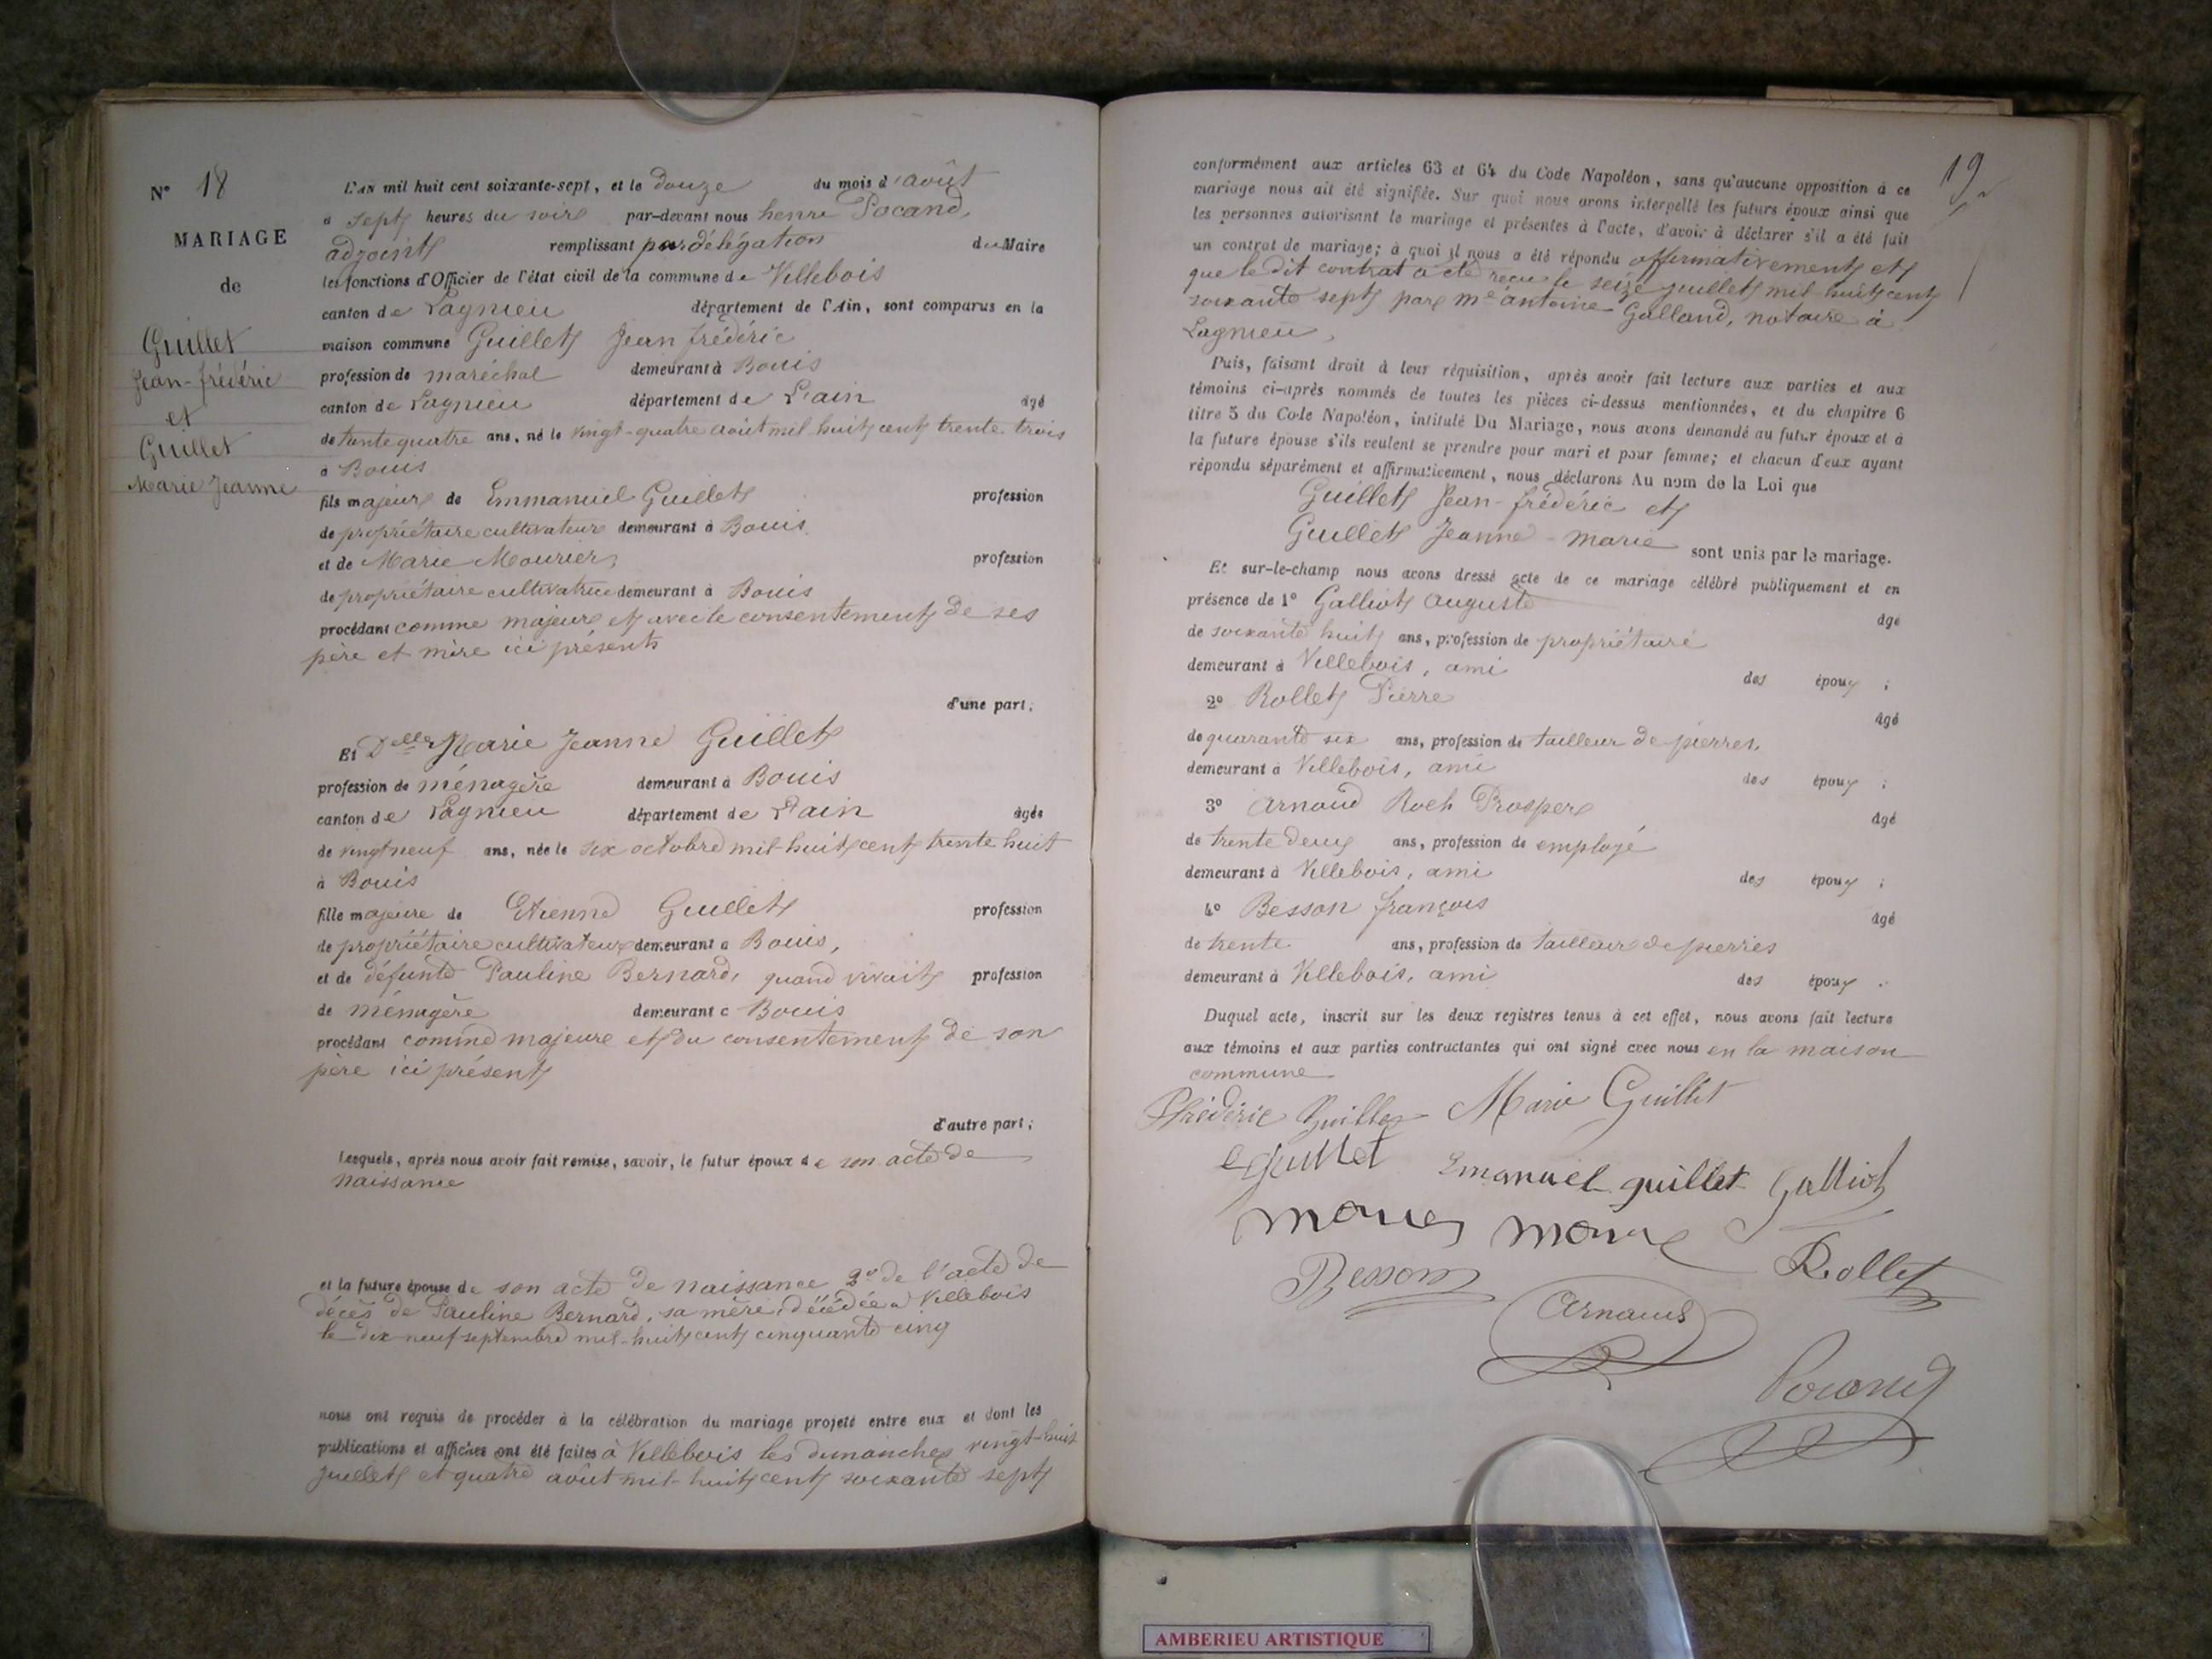 N° 18
MARIAGE
de
Guillet
Jean-frédéric
et
Guillet
Marie Jeanne
L'AN mil huit cent soixante-sept, et le douze du mois d'août
à sept heures du soir par-devant nous henri Pocand,
adjoint remplissant par délégation du Maire
les fonctions d'Officier de l'état civil de la commune de Villebois
canton de Lagnieu département de l'Ain, sont comparus en la
maison commune Guillet Jean frédéric
profession de maréchal demeurant à Bouis
canton de Lagnieu département de L'ain âgé
de trente quatre ans, né le vingt-quatre août mil huit cent trente trois
à Bouis
fils majeur de Emmanuel Guillet profession
de propriétaire cultivateur demeurant à Bouis
et de Marie Mourier, profession
de propriétaire cultivatrice demeurant à Bouis
procédant comme majeur et avec le consentement de ses
père et mère ici présents
d'une part;
Et Delle Marie Jeanne Guillet
profession de ménagère demeurant à Bouis
canton de Lagnieu département de L'ain âgée
de vingt neuf ans, née le six octobre mil-huit cent trente huit
à Bouis
fille majeure de Etienne Guillet profession
de propriétaire cultivateur demeurant à Bouis,
et de défunte Pauline Bernard, quand vivait profession
de ménagère demeurant à Bouis
procédant comme majeure et du consentement de son
père ici présent
d'autre part;
Lesquels, après nous avoir fait remise, savoir, le futur époux de son acte de
naissance
et la future épouse de son acte de naissance 2° de l'acte de
décès de Pauline Bernard, sa mère, décédée à Villebois
le dix neuf septembre mil-huit cent cinquante cinq
nous ont requis de procéder à la célébration du mariage projeté entre eux et dont les
publications et affiches ont été faites à Villebois les dimanches vingt-huit
juillet et quatre août mil-huit cent soixante sept
19
conformément aux articles 63 et 64 du Code Napoléon, sans qu'aucune opposition à ce
mariage nous ait été signifiée. Sur quoi nous avons interpellé les futurs époux ainsi que
les personnes autorisant le mariage et présentes à l'acte, d'avoir à déclarer s'il a été fait
un contrat de mariage; à quoi il nous a été répondu affirmativement et
que le dit contrat a été reçu le seize juillet mil-huit cent
soixante sept par me antoine Galland, notaire à
Lagnieu,
Puis, faisant droit à leur réquisition, après avoir fait lecture aux parties et aux
témoins ci-après nommés de toutes les pièces ci-dessus mentionnées, et du chapitre 6
titre 5 du Code Napoléon, intitulé Du Mariage, nous avons demandé au futur époux et à
la future épouse s'ils veulent se prendre pour mari et pour femme; et chacun d'eux ayant
répondu séparément et affirmativement, nous déclarons Au nom de la Loi que
Guillet Jean-frédéric et
Guillet Jeanne-marie sont unis par le mariage.
Et sur-le-champ nous avons dressé acte de ce mariage célébré publiquement et en
présence de 1° Galliot Auguste âgé
de soixante huit ans, profession de propriétaire
demeurant à Villebois, ami des époux ;
2° Rollet Pierre âgé
de quarante six ans, profession de tailleur de pierres,
demeurant à Villebois, ami des époux ;
3° Arnaud Roch Prosper âgé
de trente deux ans, profession de employé
demeurant à Villebois, ami des époux ;
4° Besson françois âgé
de trente ans, profession de tailleur de pierres
demeurant à Villebois, ami des époux .
Duquel acte, inscrit sur les deux registres tenus à cet effet, nous avons fait lecture
aux témoins et aux parties contractantes qui ont signé avec nous en la maison
commune
Phrédéric Guillet Marie Guillet
eguillet Emanuel guillet Galliot
Besson Rollet
Arnaud
Pocand
AMBERIEU ARTISTIQUE